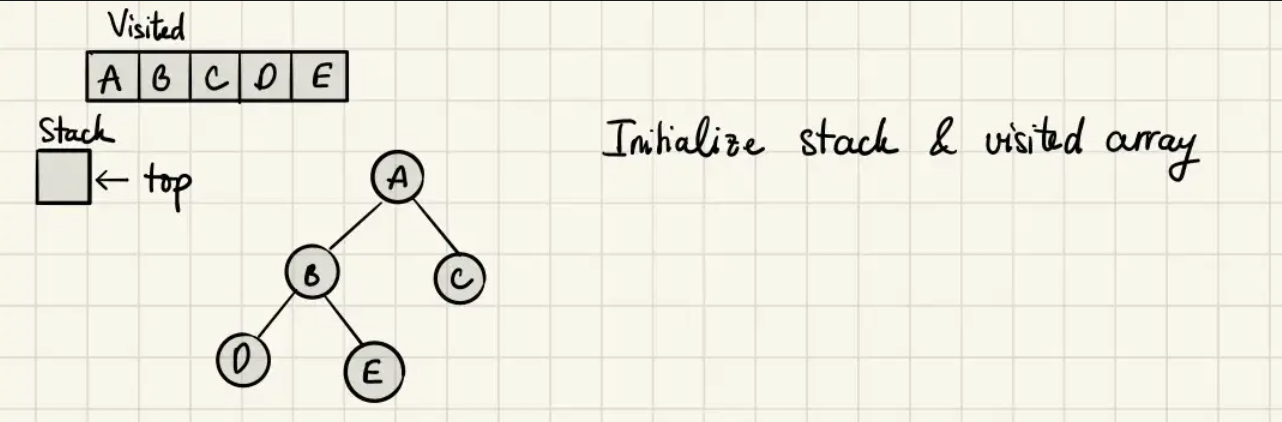 Visited
A B C D E
Stack
← top
Initialize stack & visited array
A
B
C
D
E